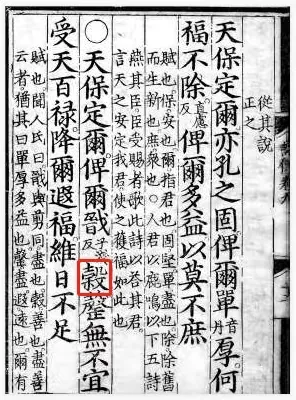 從其說
正之
天保定爾亦孔之固俾爾單音丹厚何
福不除慮反俾爾多益以莫不庶
賦也保安也爾指君也固堅單盡也除除舊
而生新也庶衆也○人君以鹿鳴以下五詩
燕其臣臣受賜者歌此詩以荅其君
言天之安定我君使之獲福如此也
○天保定爾俾爾戩子淺反榖罄無不宜
受天百禄降爾遐福維日不足
賦也聞人氏曰戩與剪同盡也榖善也盡善
云者猶其曰單厚多益也罄盡遐遠也爾有